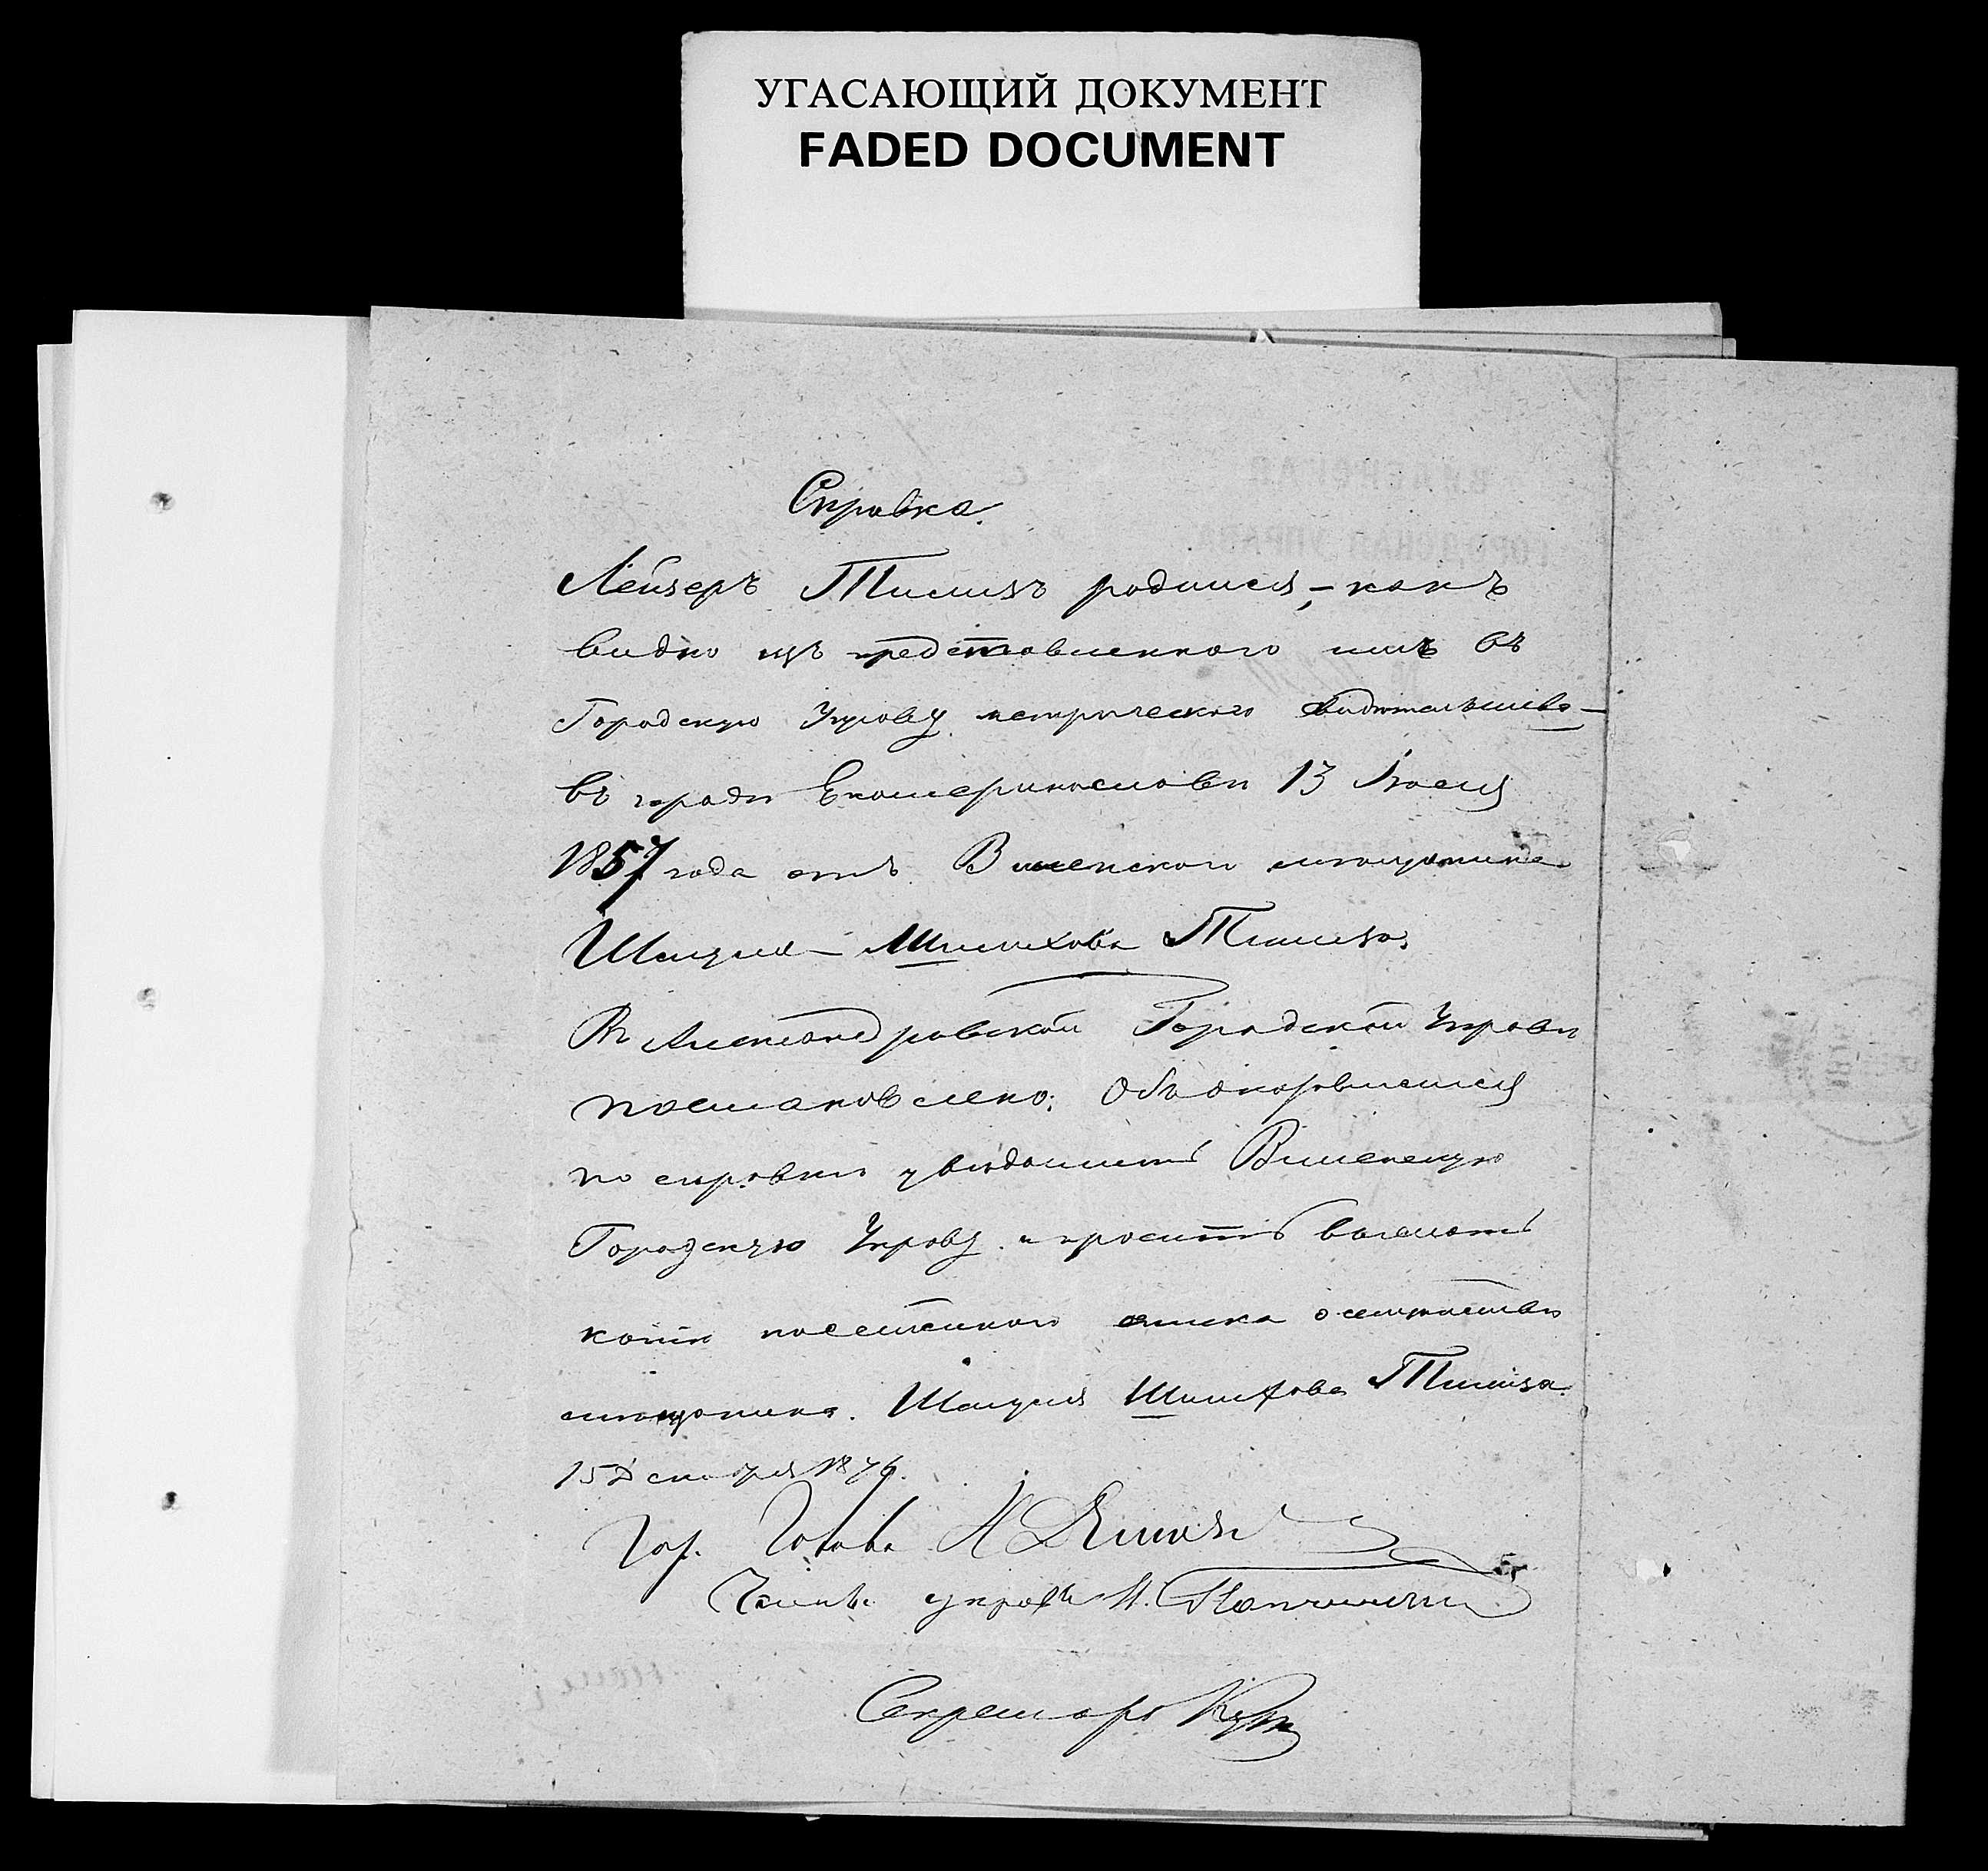 УГАСАЮЩИЙ ДОКУМЕНТ
FADED DOCUMENT
Справка.
Лейзеръ Тилисъ родился, – какъ
видно изъ представленного имъ въ
Городскую Управу метрического свидѣтельства –
въ городѣ Екатеринославѣ 13 Іюля
1857 года отъ Виленского мѣщанина
Шаула – Шлиомхова Тилиса.
Въ Александровской Городской Управѣ
постановлено: Объ оказавшемся
по справкѣ увѣдомить Виленскую
Городскую Управу и просить выслать
копію посемейного списка о семействѣ
мѣщанина Шаула Тилиса.
15 Декабря 1876.
Гор. Голова
Членъ управы
Секретарь